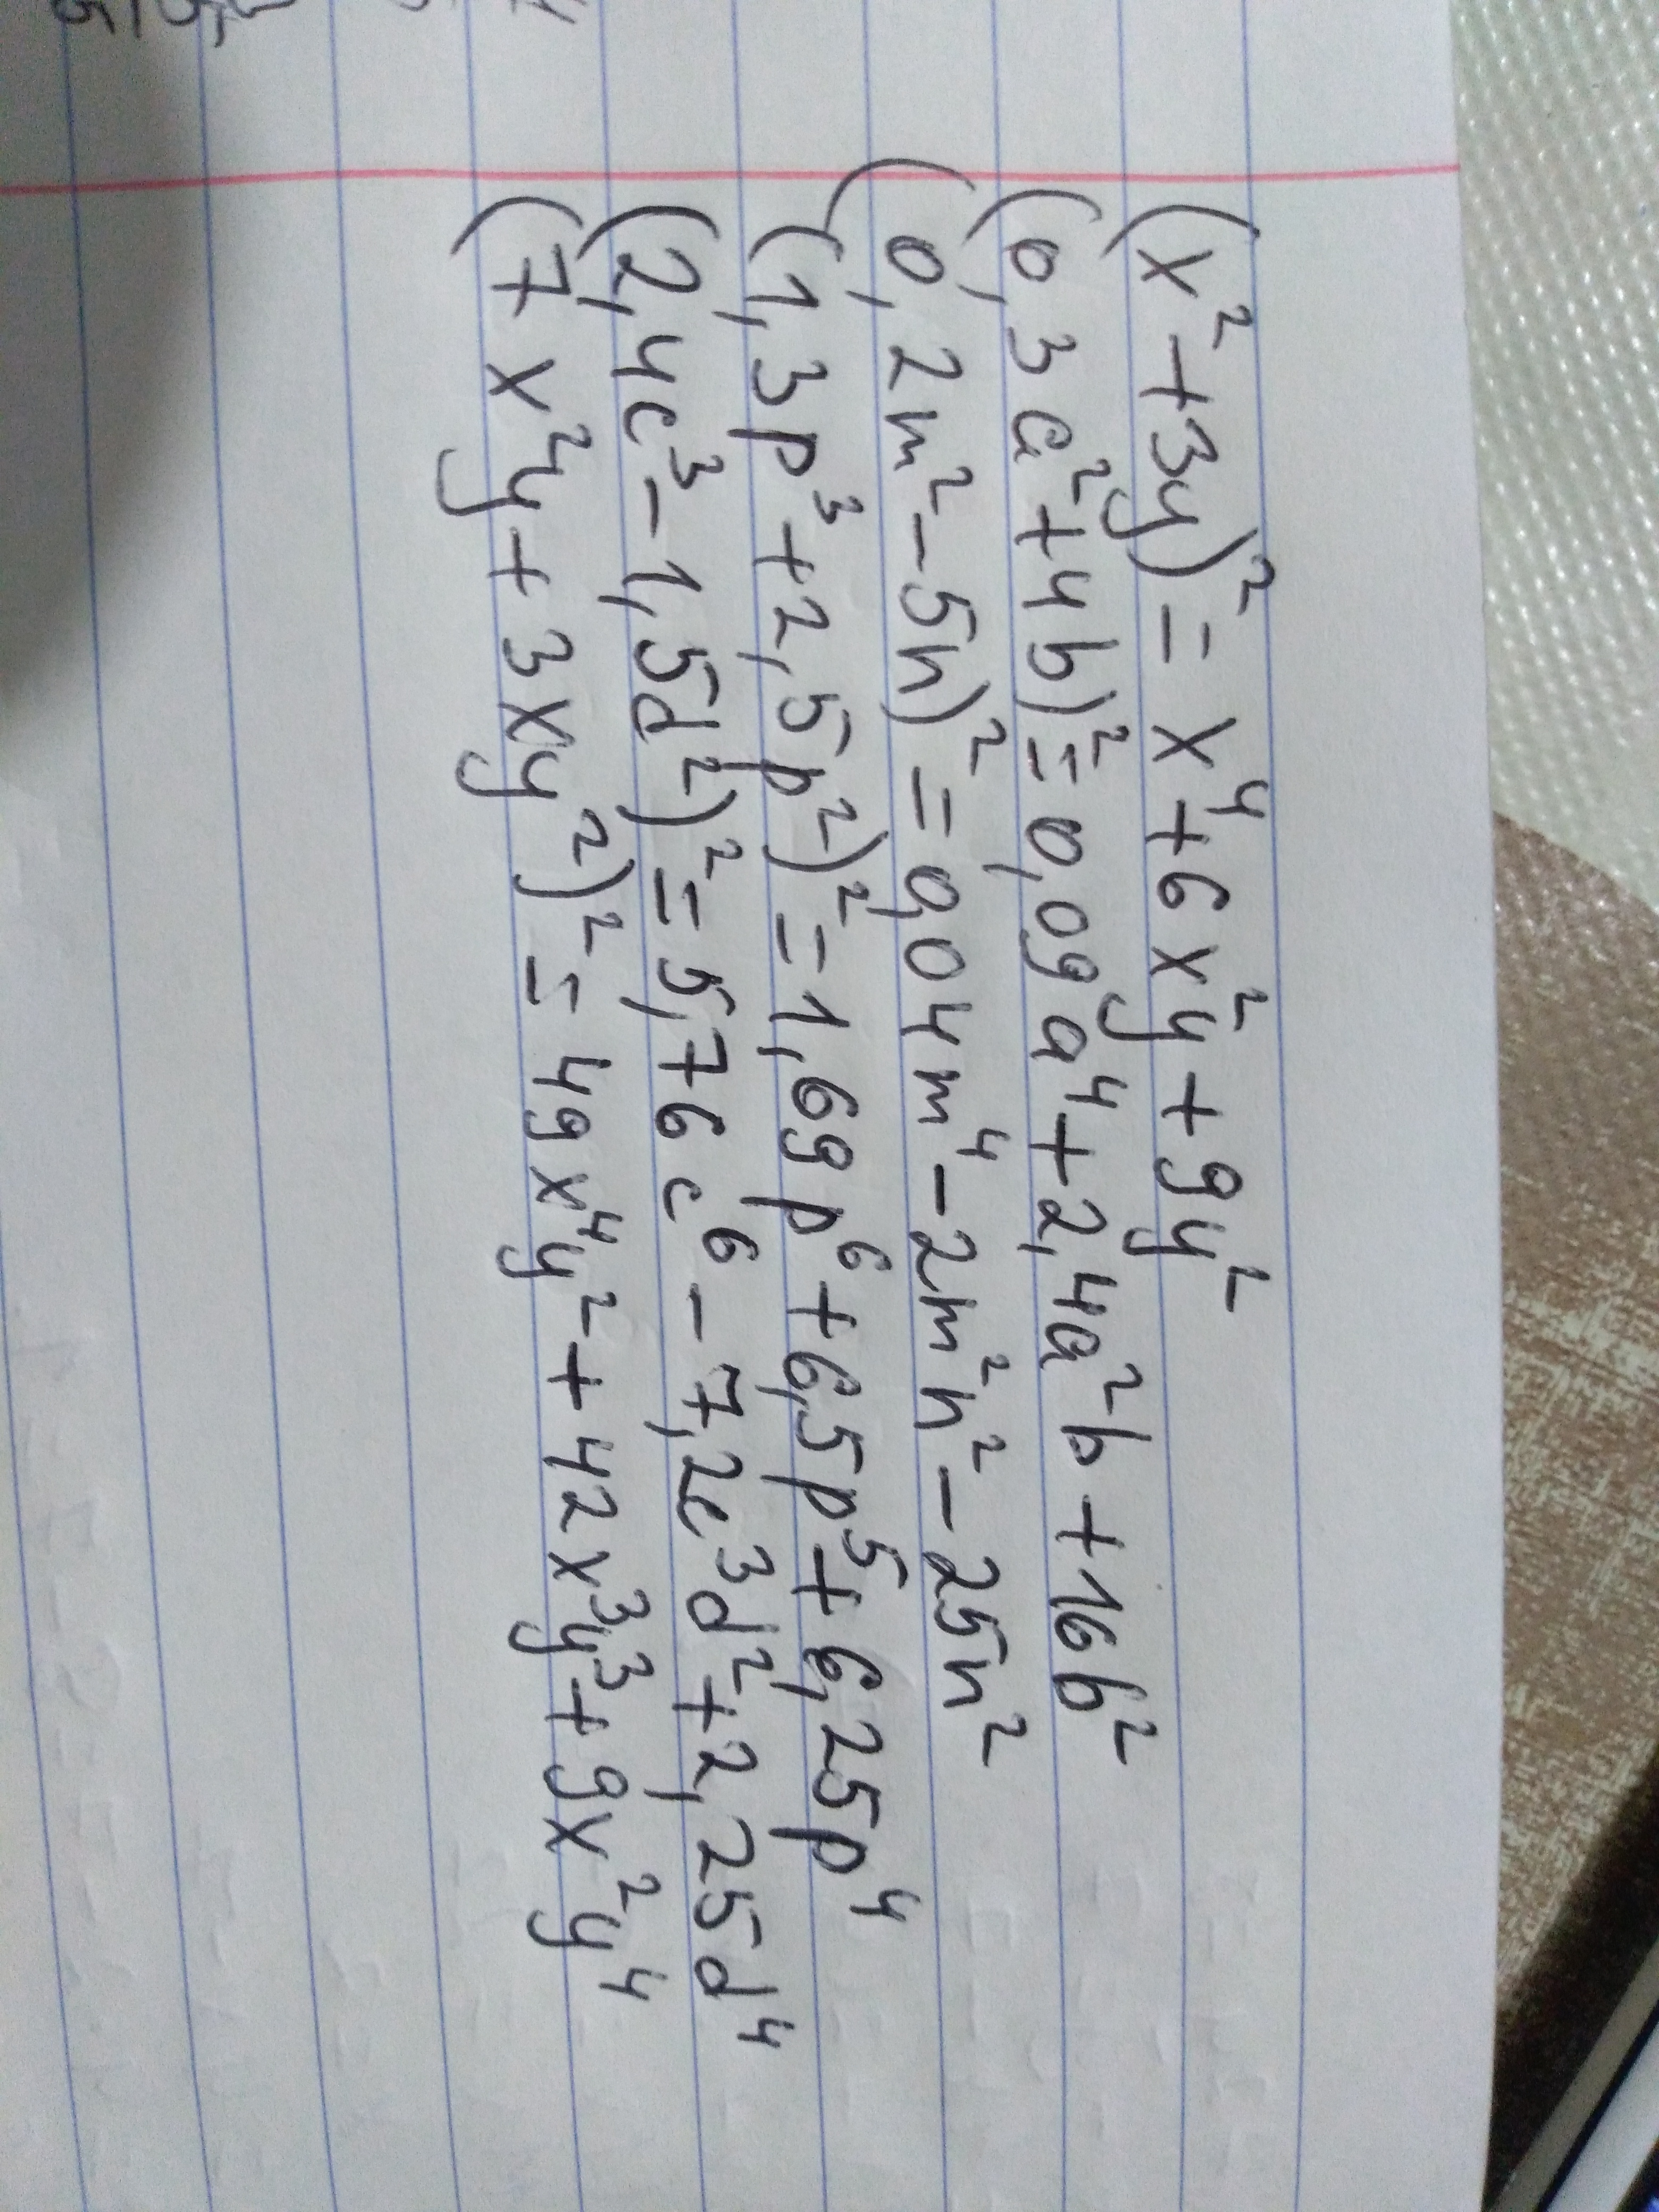 (x²+3y)² = x⁴+6x²y+9y²
(0,3a²+4b)² = 0,09a⁴+2,4a²b+16b²
(0,2m²-5n)² = 0,04m⁴-2m²n²-25n²
(1,3p³+2,5p²)² = 1,69p⁶+6,5p⁵+6,25p⁴
(2,4c³-1,5d²)² = 5,76c⁶-7,2c³d²+2,25d⁴
(7x²y+3xy²)² = 49x⁴y²+42x³y³+9x²y⁴